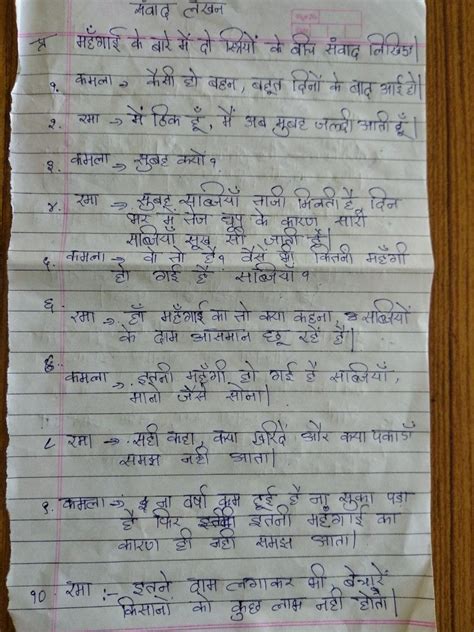 संवाद लेखन
प्र महँगाई के बारे में दो स्त्रियों के बीच संवाद लिखिए।
१. कमला → कैसी हो बहन, बहुत दिनों के बाद आई हो।
२. रमा → मैं ठिक हूँ, मैं अब सुबह जल्दी आती हूँ।
३. कमला → सुबह क्यों?
४. रमा → सुबह सब्जियाँ ताजी मिलती है, दिन
भर में तेज धूप के कारण सारी
सब्जियाँ सूख सी जाती हैं।
५. कमला → वा तो है? वैसे भी कितनी महँगी
हो गई हैं सब्जियाँ?
६. रमा → हाँ महँगाई का तो क्या कहना, सब्जियों
के दाम आसमान छू रहें हैं।
कमला → इतनी महँगी हो गई हैं सब्जियाँ,
मानो जैसे सोना।
८ रमा → सही कहा, क्या खरिदें और क्या पकाऊँ
समझ नही आता।
९. कमला → ना वर्षा कम हुई है ना सुका पड़ा
है फिर इतनी महँगाई का
कारण ही नही समझ आता।
१० रमा :- इतने दाम लगाकर भी, बेचारे
किसानों को कुछ लाभ नही होता।